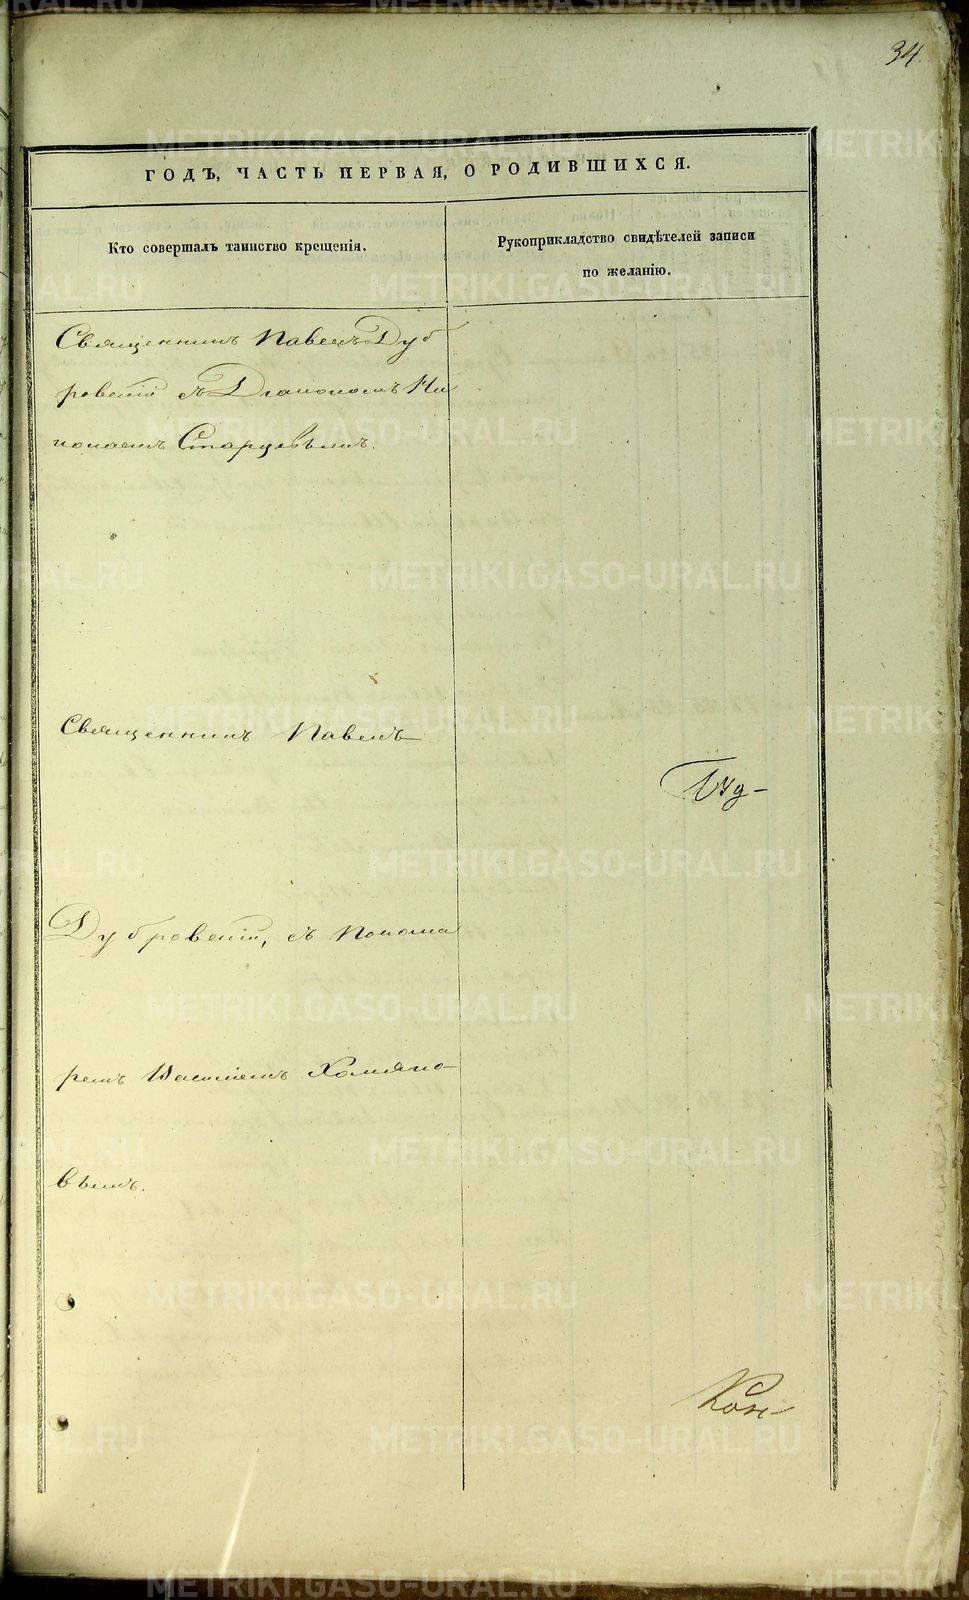 34.
ГОДЪ, ЧАСТЬ ПЕРВАЯ, О РОДИВШИХСЯ.
Кто совершалъ таинство крещенія.
Рукоприкладство свидѣтелей записи
по желанію.
Священникъ Павелъ Дуб
ровскій съ Діакономъ Ни
колаемъ Старцевымъ.
Священникъ Павелъ
Дубровскій, съ Понома
ремъ Василіемъ Хомяко-
вымъ.
METRIKI.GASO-URAL.RU